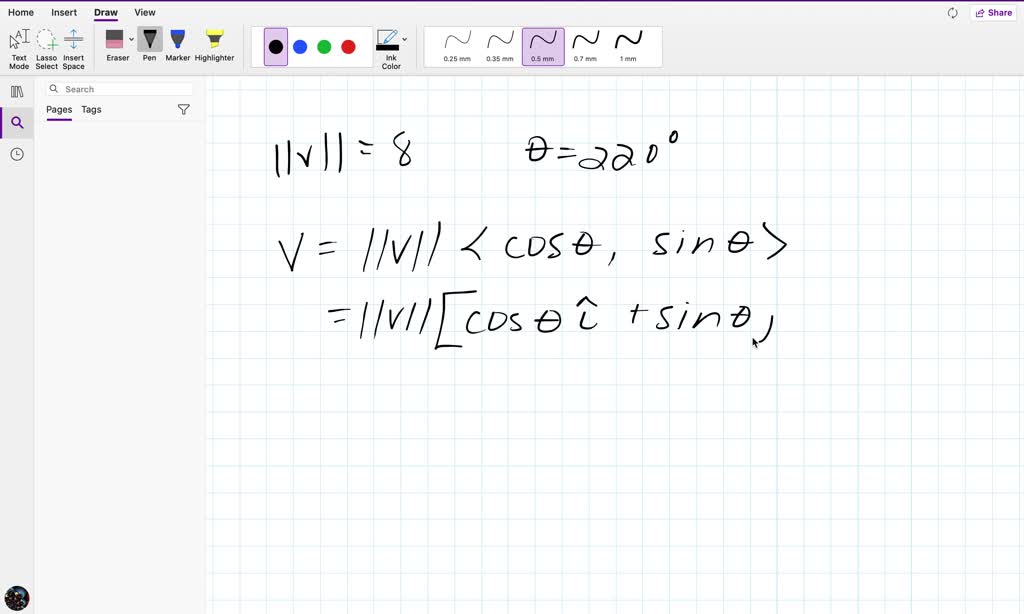 Home Insert Draw View Share
Text Mode Lasso Select Insert Space Eraser Pen Marker Highlighter Ink Color 0.25 mm 0.35 mm 0.5 mm 0.7 mm 1 mm
Search
Pages Tags
||v|| = 8 θ = 220°
v = ||v|| < cosθ, sinθ >
= ||v|| [cosθ î + sinθ j